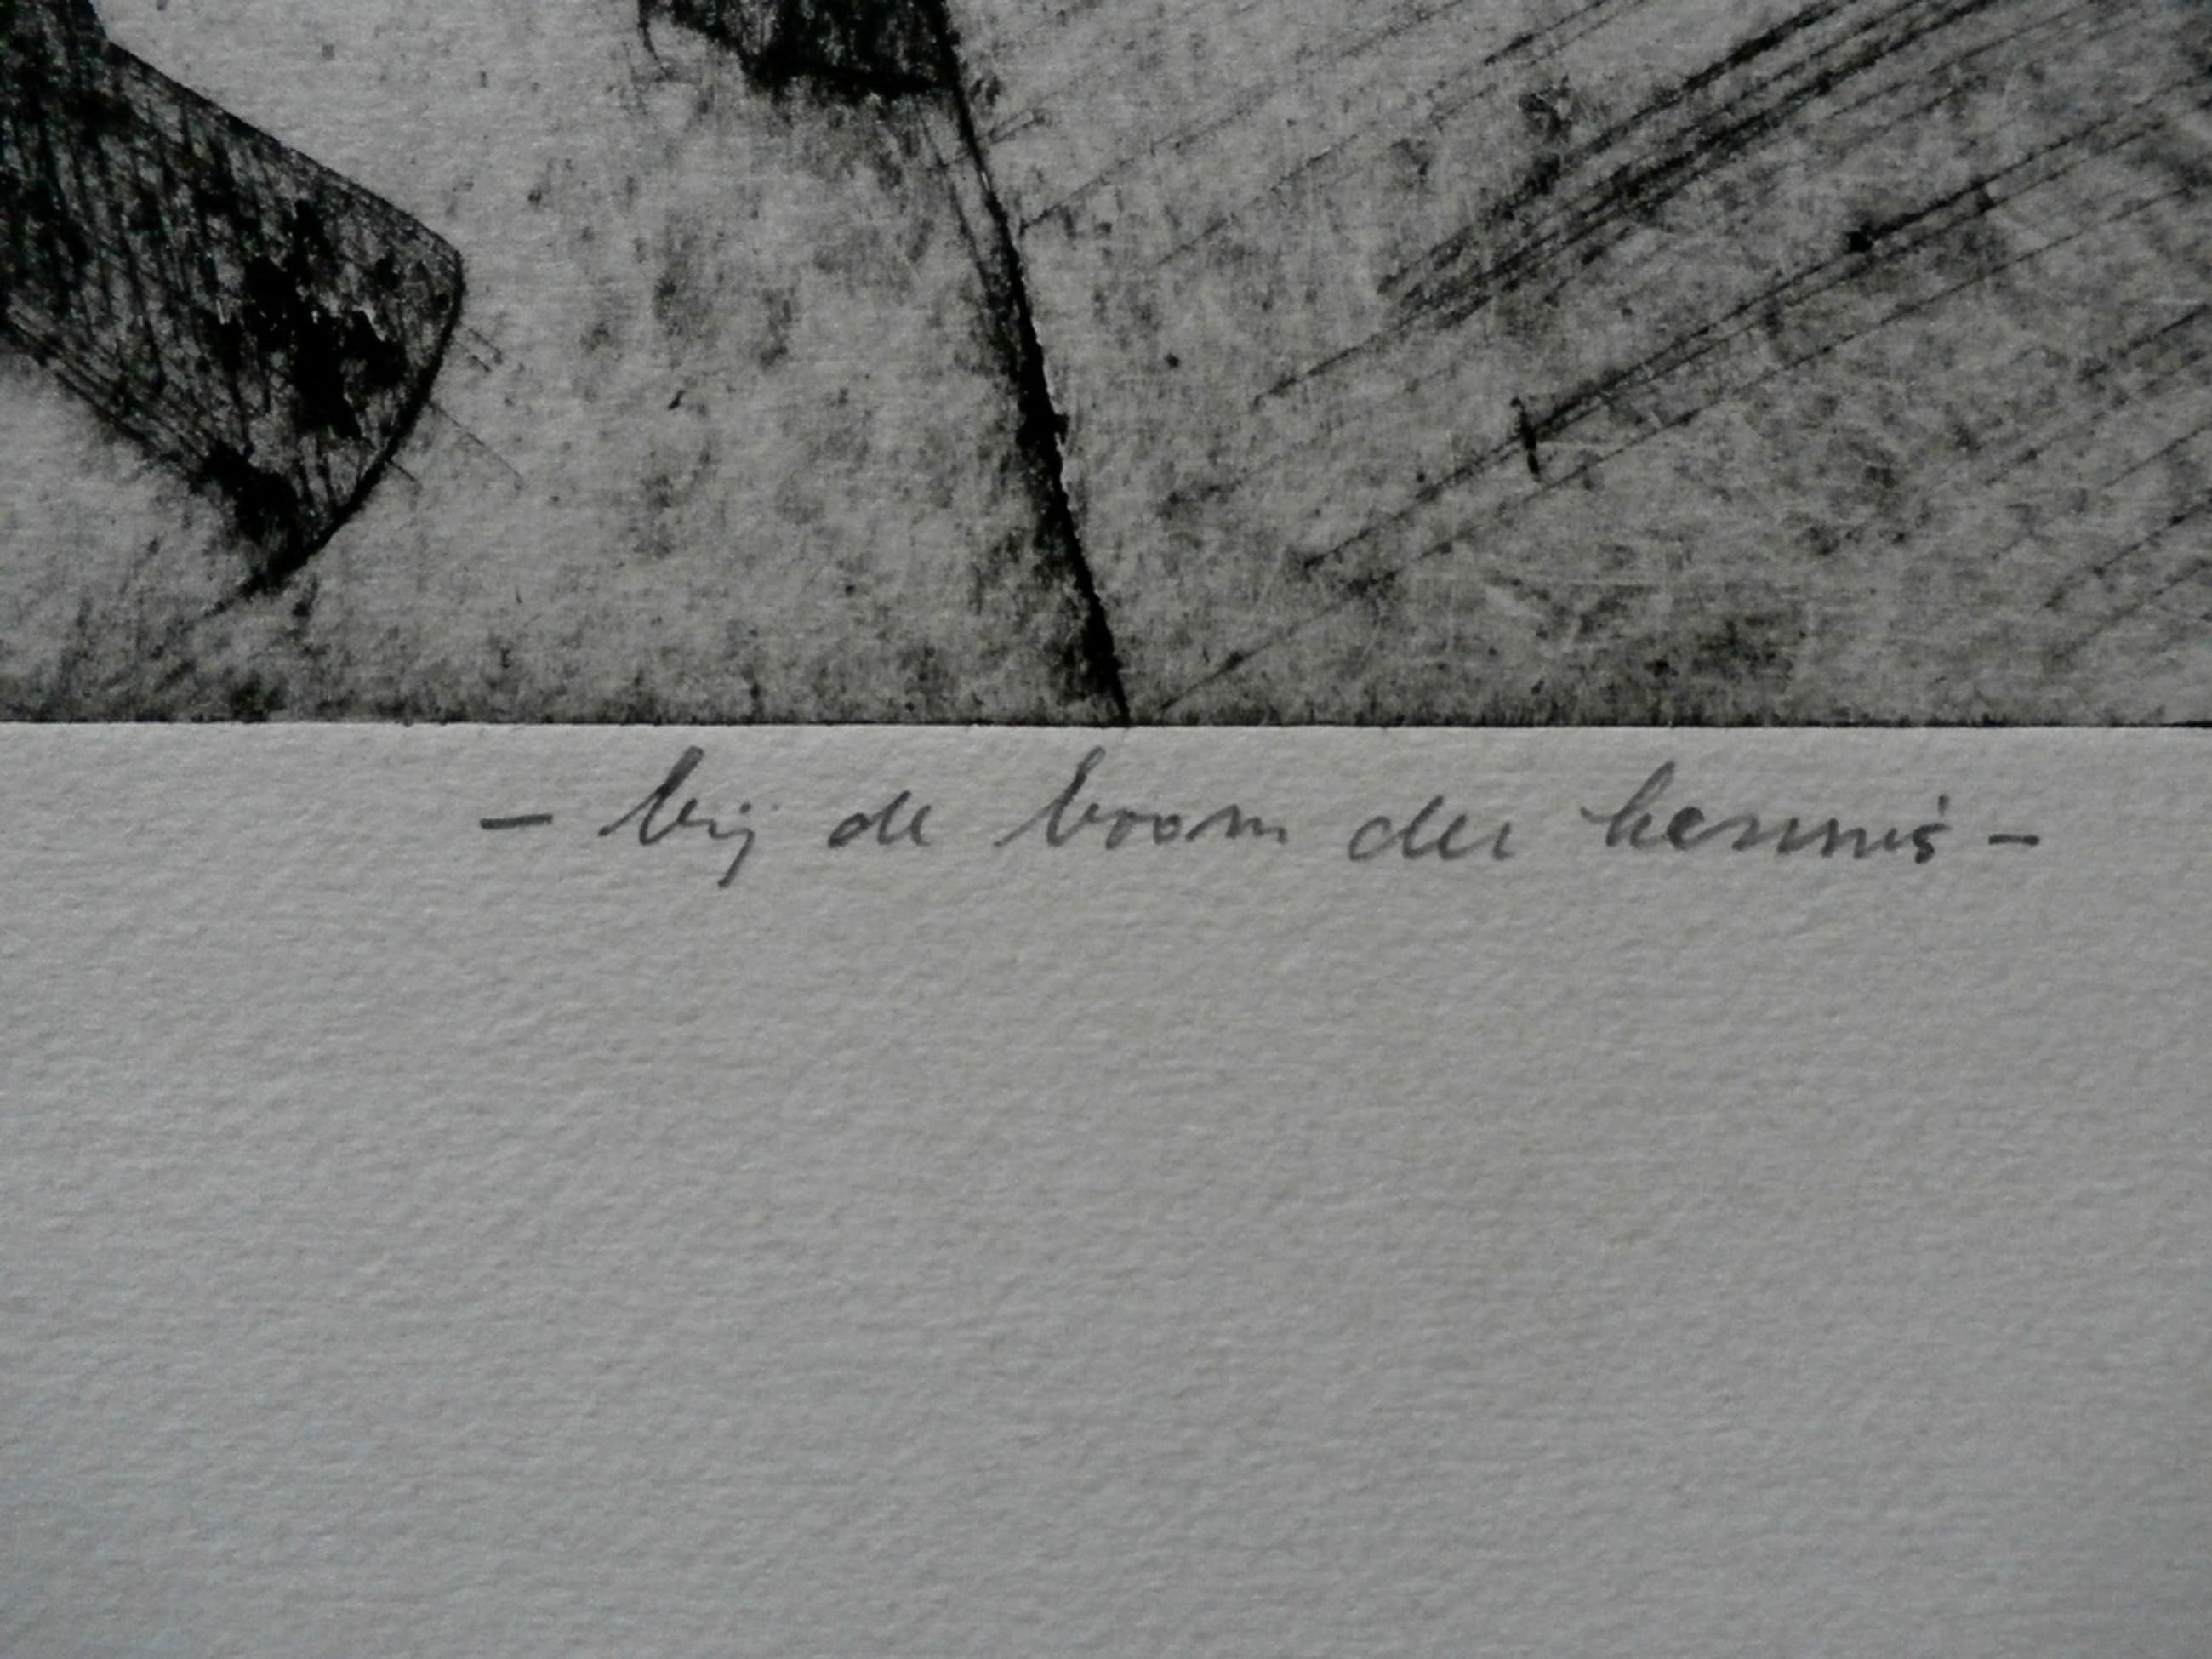 - bij de boom der kennis -